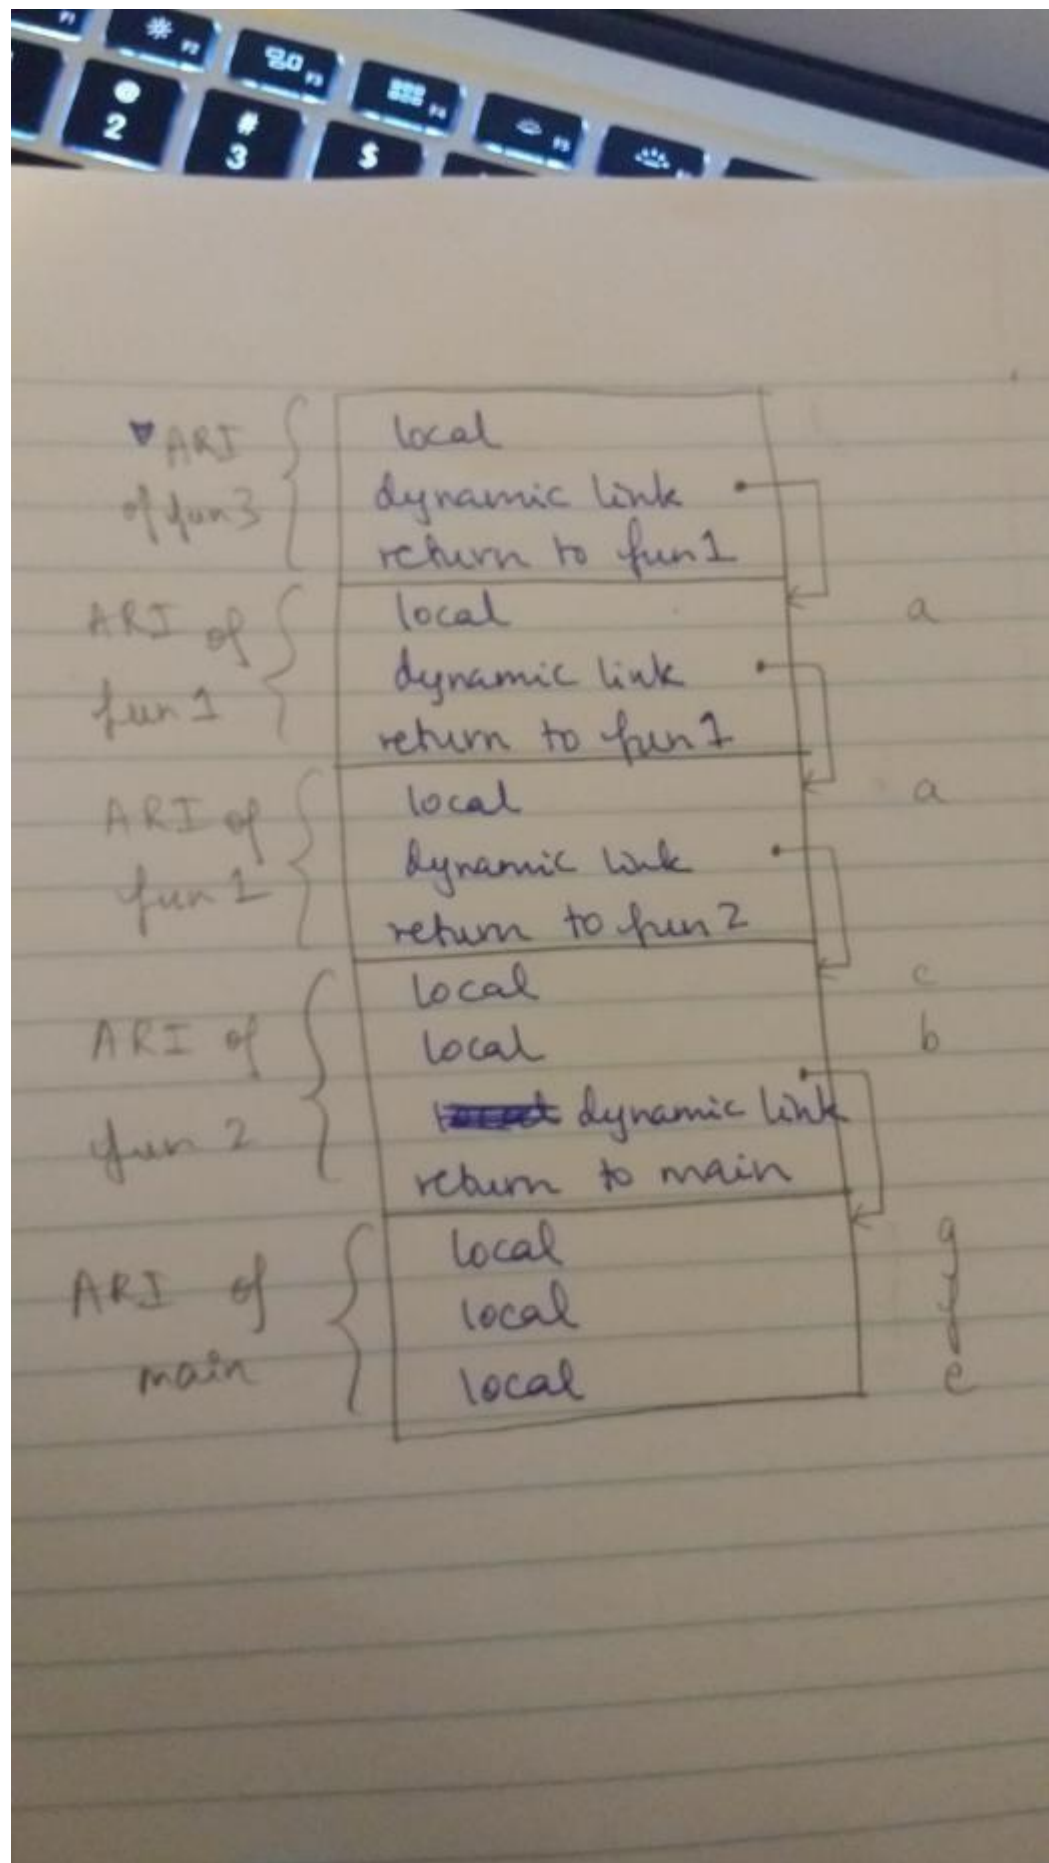 F1
F2
F3
F4
F5
@
2
#
3
$
ARI
of fun3
local
dynamic link
return to fun1
ARI of
fun 1
local
a
dynamic link
return to fun1
ARI of
fun 1
local
a
dynamic link
return to fun2
ARI of
fun 2
local
c
local
b
dynamic link
return to main
ARI of
main
local
g
local
f
local
e